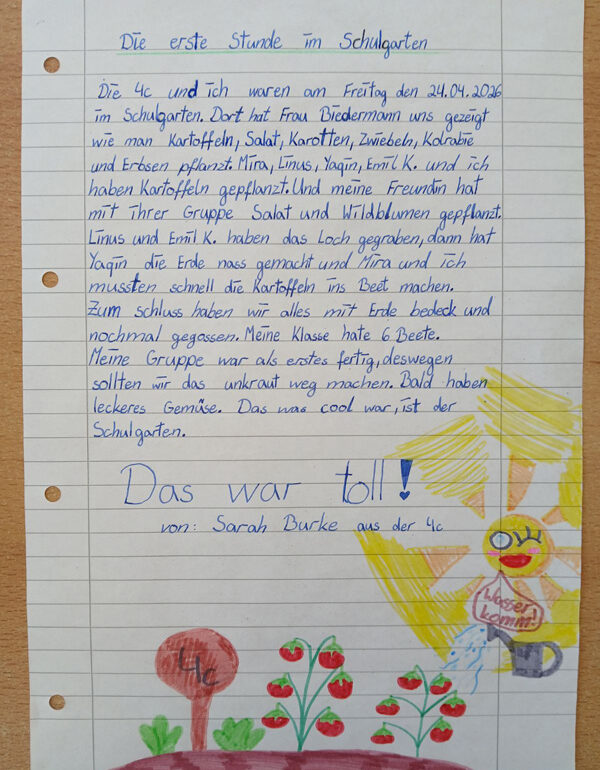 Die erste Stunde im Schulgarten
Die 4c und ich waren am Freitag den 24.04.2026
im Schulgarten. Dort hat Frau Biedermann uns gezeigt
wie man Kartoffeln, Salat, Karotten, Zwiebeln, Kolrabie
und Erbsen pflanzt. Mira, Linus, Yaqin, Emil K. und ich
haben Kartoffeln gepflanzt. Und meine Freundin hat
mit ihrer Gruppe Salat und Wildblumen gepflanzt.
Linus und Emil K. haben das Loch gegraben, dann hat
Yaqin die Erde nass gemacht und Mira und ich
mussten schnell die Kartoffeln ins Beet machen.
Zum schluss haben wir alles mit Erde bedeck und
nochmal gegossen. Meine Klasse hate 6 Beete.
Meine Gruppe war als erstes fertig, deswegen
sollten wir das unkraut weg machen. Bald haben
leckeres Gemüse. Das was cool war, ist der
Schulgarten.
Das war toll!
von: Sarah Burke aus der 4c
Wasser
komm!
4c